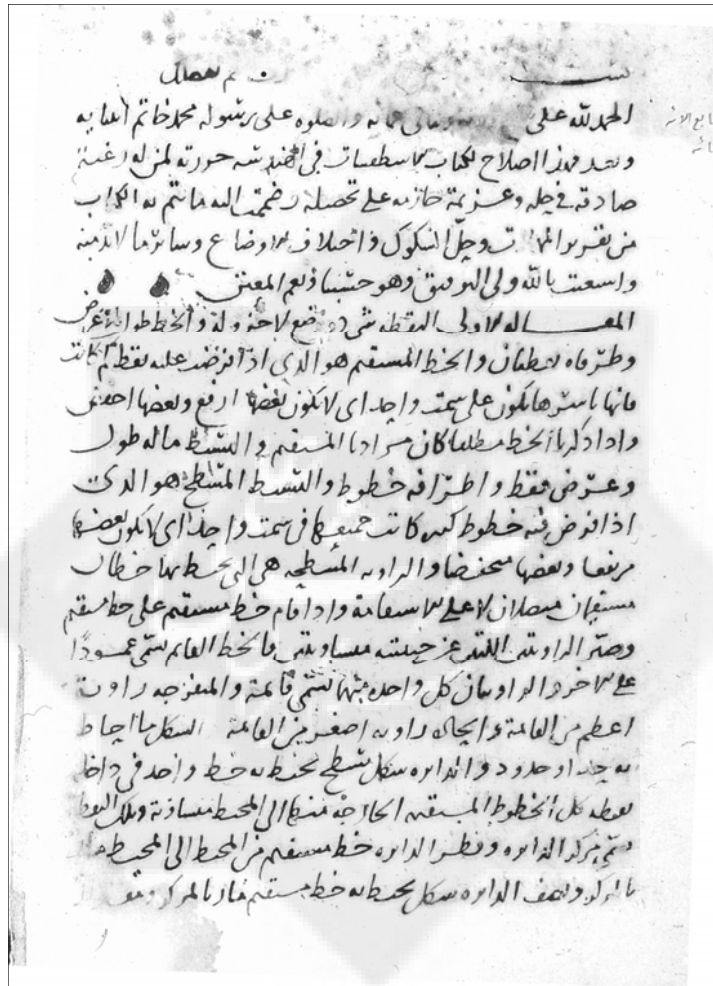 الحمد لله على وعلى والصلوه على رسوله محمد خاتم انبيايه
وبعد فهذا اصلاح لكتاب الاسطقسات فى الهندسه حررته لمن له رغبة
صادقه فى حله وعزيمة جازمه على تحصيله وضممت اليه ما يتم به الكتاب
من تقرير وحل الشكوك واختلاف الاوضاع وساير ما لا بد منه
واستعنت بالله ولى التوفيق وهو حسبنا ونعم المعين
المقــاله الاولى النقطه شى ذو وضع لا جزو له والخط طول بلا عرض
وطرفاه نقطتان والخط المستقيم هو الذى اذا فرضت عليه نقط كم كانت
فانها باسرها تكون على سمت واحد اى لا يكون بعضها ارفع وبعضها اخفض
واذا ذكرنا الخط مطلقا كان مرادنا المستقيم والبسيط ما له طول
وعرض فقط واطرافه خطوط والبسيط المسطح هو الذى
اذا فرض فيه خطوط كانت جميعها فى سمت واحد اى لا يكون بعضها
مرتفعا وبعضها منخفضا والزاويه المسطحه هى التى يحيط بها خطان
مستقيمان متصلان لا على الاستقامة واذا قام خط مستقيم على خط مستقيم
وصير الزاويتين اللتين عن جنبتيه متساويتين فالخط القايم يسمى عمودا
على الاخر والزاويتان كل واحده منهما تسمى قايمة والمنفرجه زاوية
اعظم من القايمة والحاده زاويه اصغر من القايمة الشكل ما احاط
به حد او حدود والدايره شكل مسطح يحيط به خط واحد فى داخله
نقطه كل الخطوط المستقيمه الخارجه منها الى المحيط متساوية وتلك النقطة
تسمى مركز الدايره وقطر الدايره خط مستقيم من المحيط الى المحيط
بالمركز ونصف الدايره شكل يحيط به خط مستقيم مار بالمركز